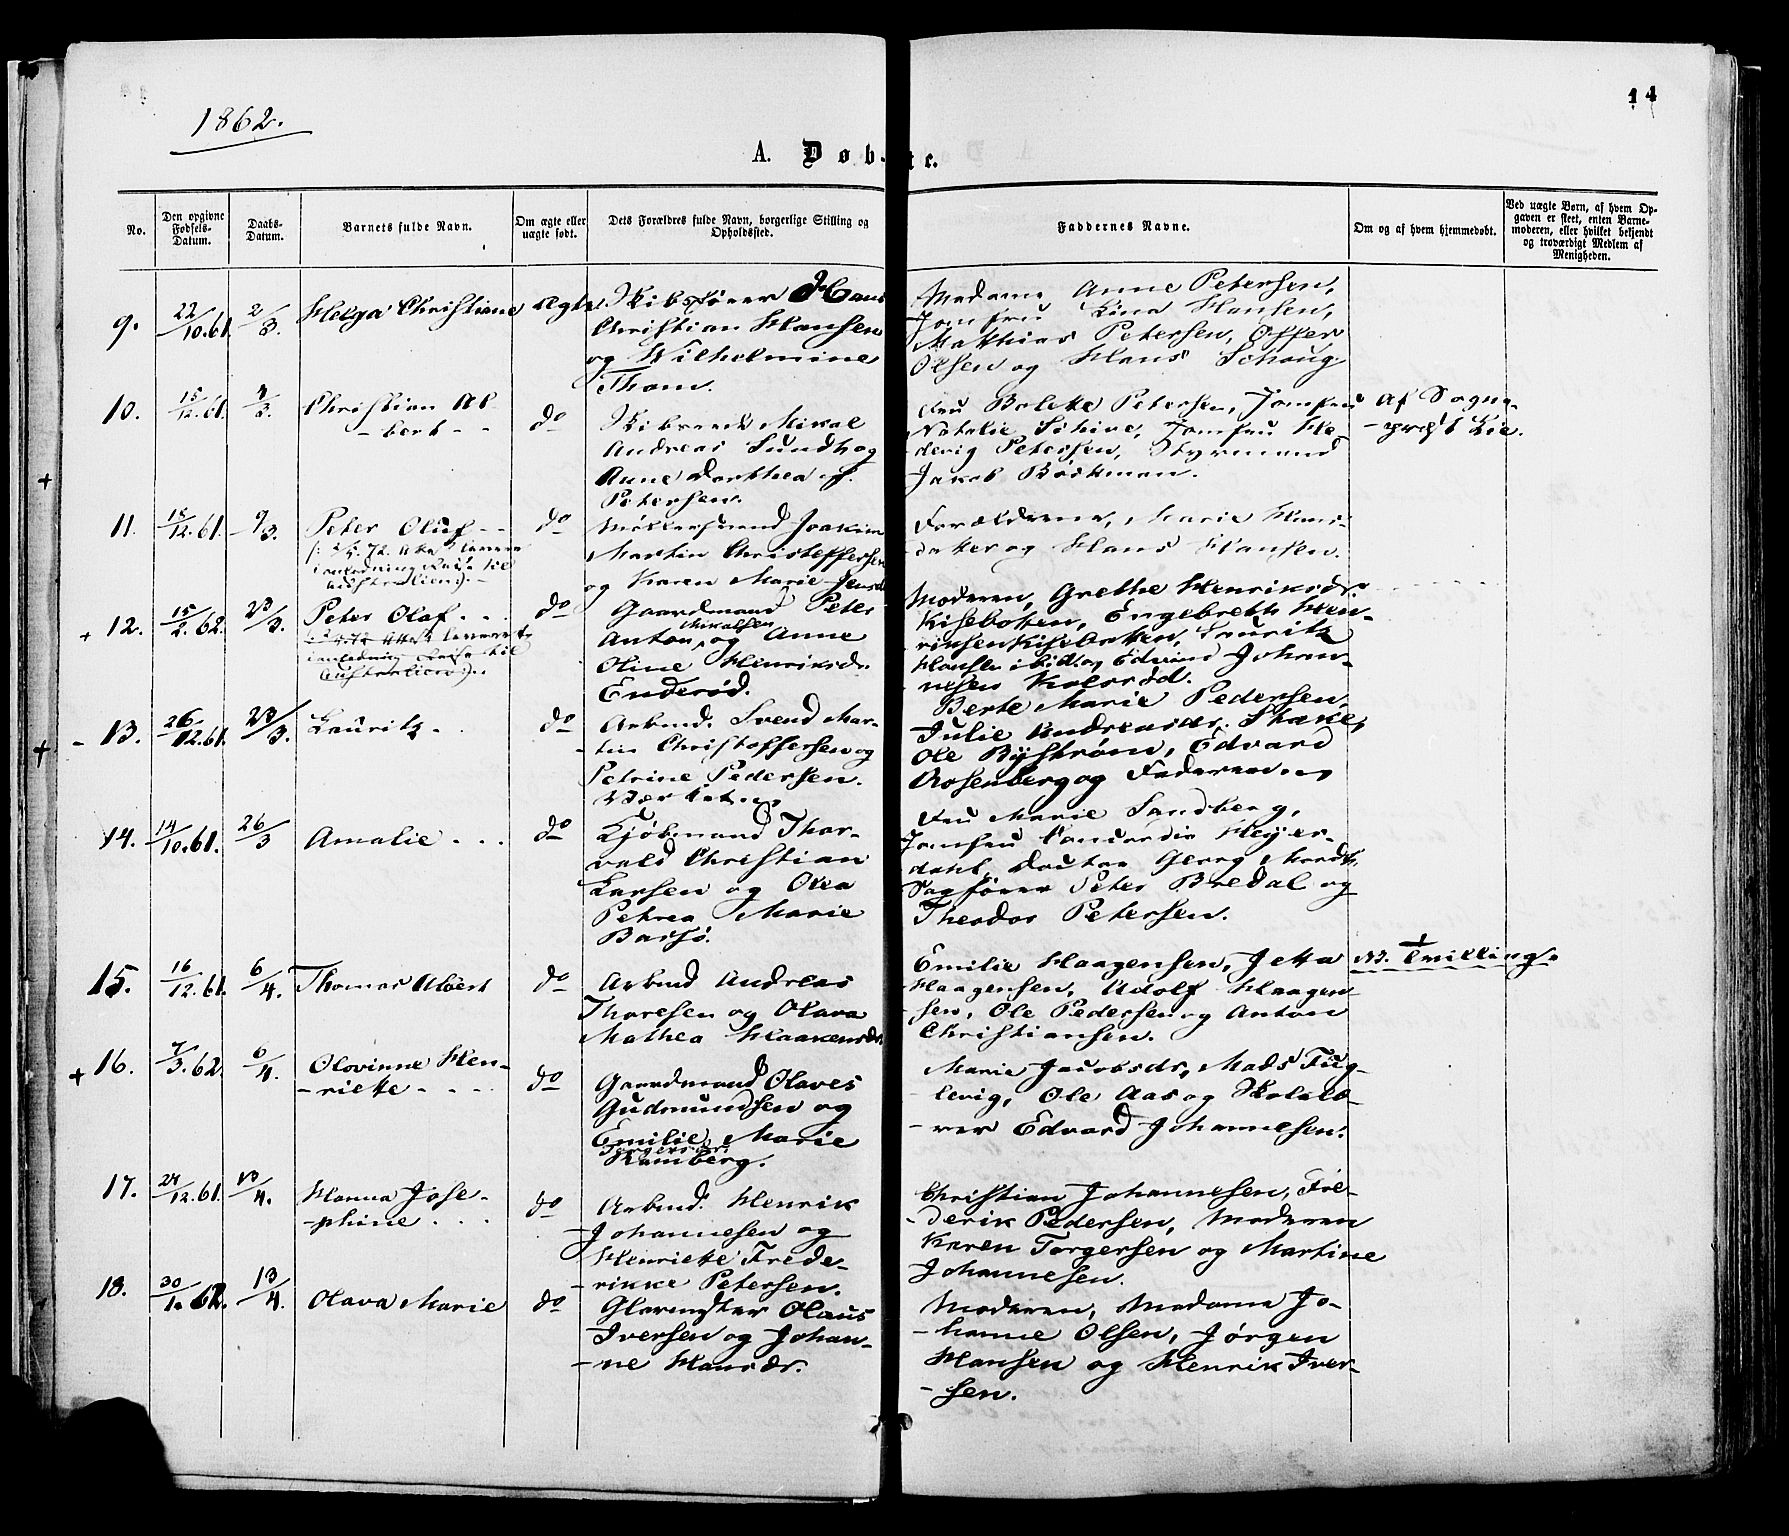 1862.
14
A. Døbte.
No.
Den opgivne Fødsels-Datum.
Daabs-Datum.
Barnets fulde Navn.
Om ægte eller uægte født.
Dets Forældres fulde Navn, borgerlige Stilling og Opholdssted.
Faddernes Navne.
Om og af hvem hjemmedøbt.
Ved uægte Børn, af hvem Opgaven er skeet, enten Barnemoderen, eller hvilket bekjendt og troværdigt Medlem af Menigheden.
9. 22/10.61. 2/3. Helga Christiane ægte Skibsfører Hans
Christian Hansen
og Wilhelmine
Thom.
Madame Anne Petersen,
Jomfru Lina Hansen,
Matthias Petersen, Offer
Olsen og Hans Schaug
10. 15/12.61. 9/3. Christian Al-
-bert - -
do
Skibsreed Mikal
Andreas Sundh og
Anne Dorthea f.
Petersen.
Fru Bolette Petersen, Jomfru
Natalie Schive, Jomfru He-
-devig Petersen, Styrmand
Jakob Böckman.
Af Sogne-
-præst Lie.
11. 18/12.61. 9/3. Peter Oluf - -
i anledning Reise til
Australien).-
do
Møllersvend Joakim
Martin Christoffersen
og Karen Marie Jensd.
Forældrene, Marie Hans-
-datter og Hans Hansen.
+ 12. 15/2.62. 23/3. Peter Olaf. . .
i anledning Reise til
Australien).
do
Gaardmand Peter
Anton Mikalsen og Anne
Oline Henriksdr.
Enderød.
Moderen, Grethe Henriksdr.
Kisebotten, Engebreth Hen-
-riksen Kisebotten, Lauritz
Hansen ibid. og Edvard Johan-
-nesen Kolsrød.
- 13. 26/12.61. 23/3. Lauritz. .
do
Arbmd. Svend Mar-
-tin Christoffersen og
Petrine Pedersen.
Værket.
Berte Marie Pedersen,
Julie Andreasdr. Skake,
Ole Byström, Edvard
Rosenberg og Faderen.
14. 14/10.61. 26/3 Amalie . . .
do
Kjøbmand Thor-
vald Christian
Larsen og Olea
Petrea Marie
Barsø.
Fru Marie Sandberg,
Jomfru Heyer-
dahl, Doctor Georg
Sagfører Peter Bredal og
Theodor Petersen.
15. 16/12.61. 6/4. Thomas Albert
do
Arbmd Andreas
Thoresen og Olava
Mathea Haakensdr.
Emilie Haagensen, Jetta
Haagensen, Adolf Haagen-
-sen, Ole Pedersen og Anton
Christiansen.
NB. Tvilling.
+ 16. 7/3.62. 6/4. Olovinne Hen-
-riette - . . .
do
Gaardmand Olaves
Gudmundsen og
Emilie Marie
Torgersdr.
Ramberg.
Marie Jacobsdr, Mads Fug-
-levig, Ole Aas og Skolelæ-
-rer Edvard Johannesen.
17. 24/12.61. 13/4. Hanna Jose-
-phine . . .
do
Arbmd. Henrik
Johannesen og
Henriette Frede-
-rikke Petersen.
Christian Johannesen, Fre-
-derik Pedersen, Moderen
Karen Torgersen og Martine
Johannesen.
18. 30/1.62. 13/4. Olava Marie
do
Glarmester Olaus
Iversen og Johan-
-ne Hansdr.
Moderen, Madame Jo-
-hanne Olsen, Jørgen
Hansen og Henrik Iver-
-sen.